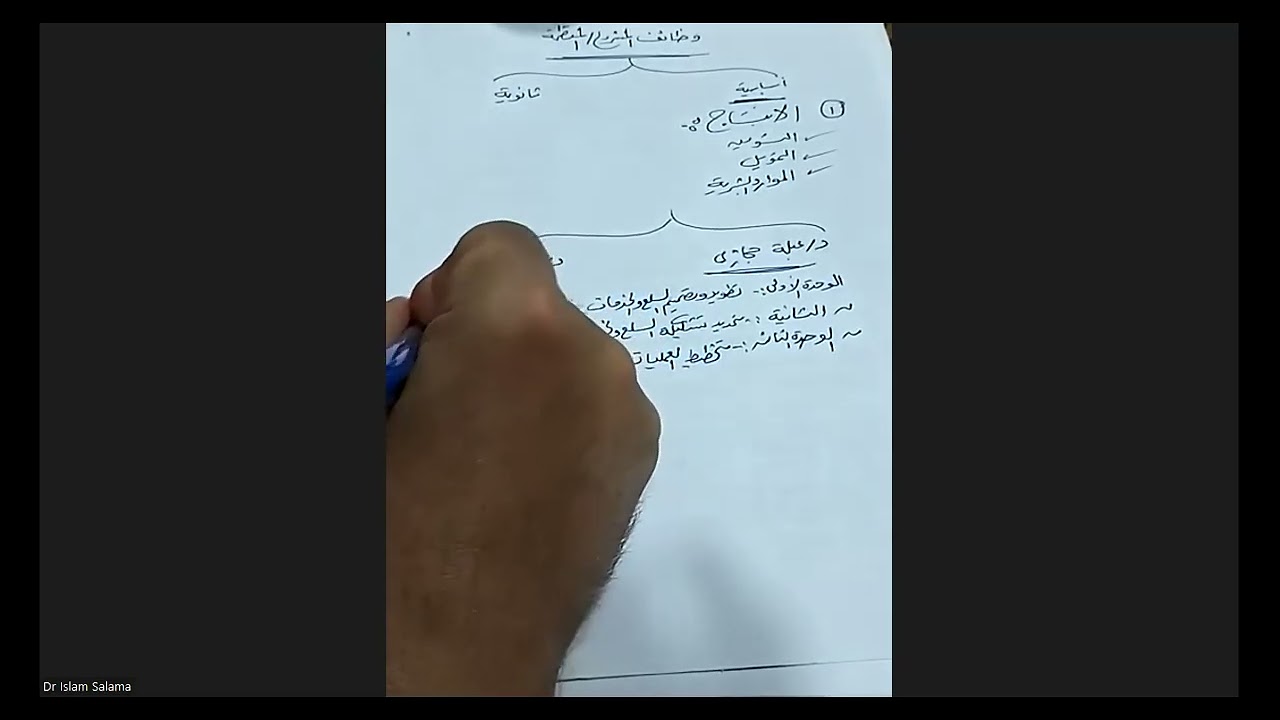 وظائف المشروع/المنظمة
أساسية
ثانوية
① الإنتاج :-
التسويق
التمويل
الموارد البشرية
د/عبلة حجازى
الوحدة الأولى :- تطوير وتصميم السلع والخدمات
~ الثانية :- تحديد تشكيلة السلع
~ الوحدة الثالثة :- تخطيط العمليات
Dr Islam Salama